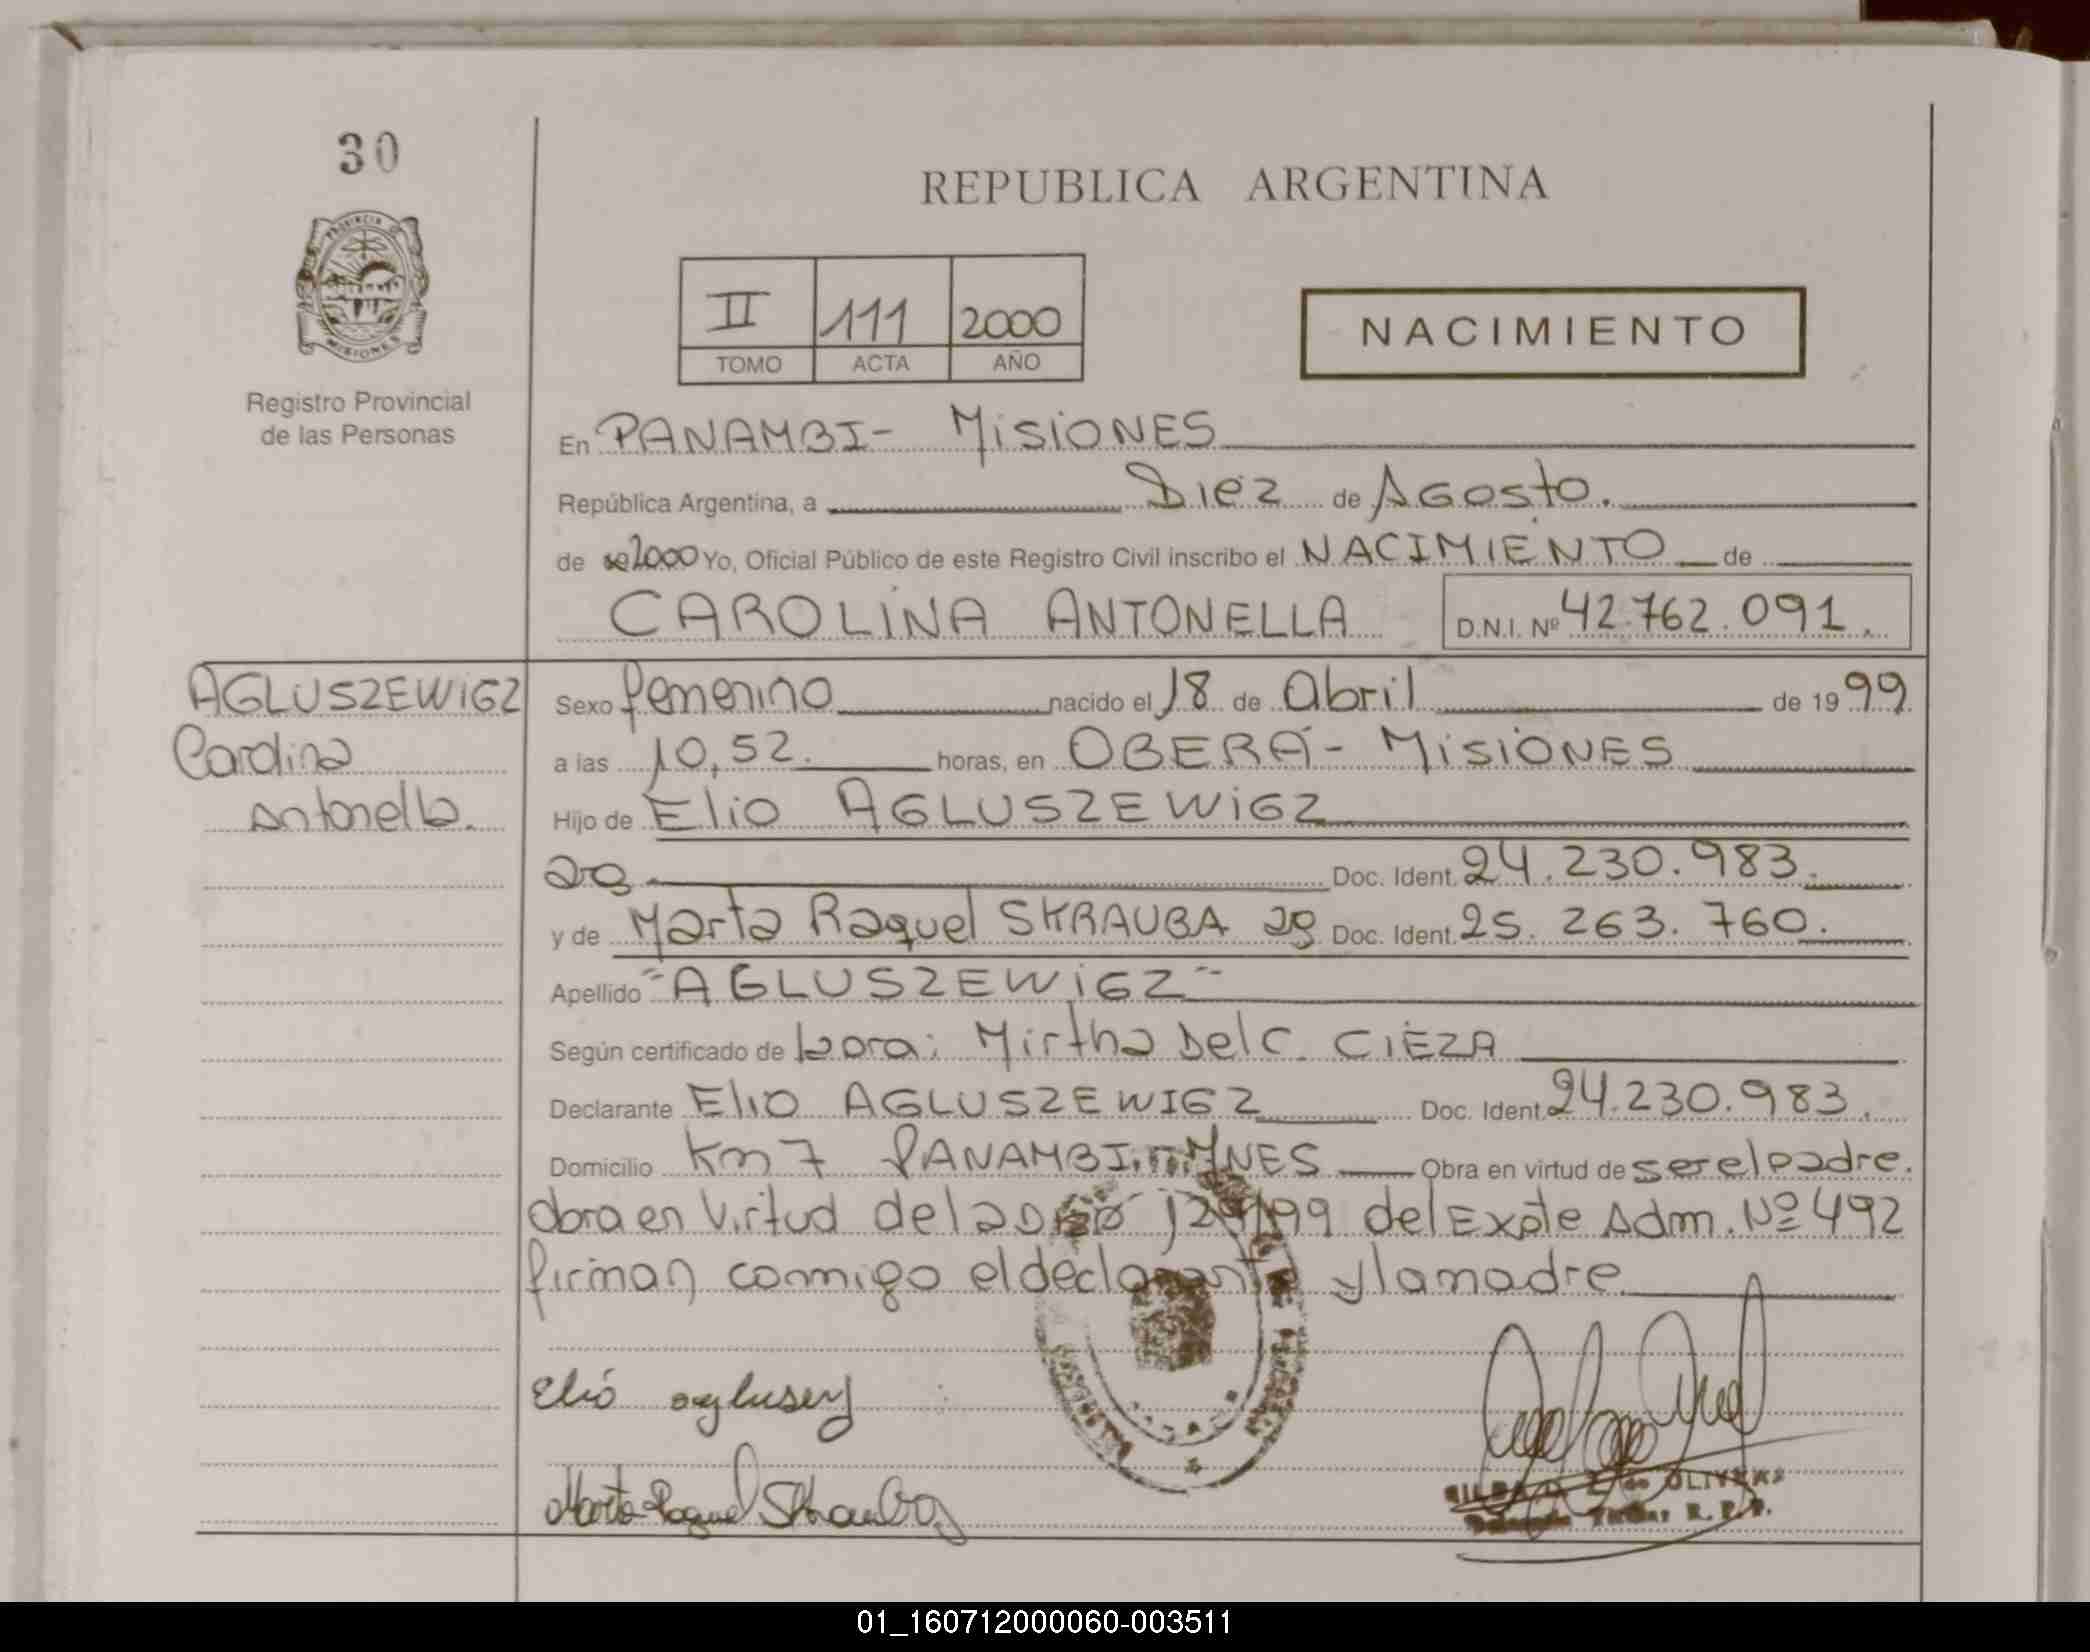 30
REPUBLICA ARGENTINA
PROVINCIA DE
MISIONES
Registro Provincial
de las Personas
II 111 2000
TOMO ACTA AÑO
NACIMIENTO
En PANAMBI- MISIONES
República Argentina, a Diez de Agosto.
de 2000 Yo, Oficial Público de este Registro Civil inscribo el NACIMIENTO de
CAROLINA ANTONELLA D.N.I. Nº 42.762.091.
AGLUSZEWIGZ
Carolina
Antonella.
Sexo femenino nacido el 18 de Abril de 1999
a las 10,52. horas, en OBERÁ- MISIONES
Hijo de Elio AGLUSZEWIGZ
Doc. Ident. 24.230.983.
y de Marta Raquel SKRAUBA Doc. Ident. 25.263.760.
Apellido "AGLUSZEWIGZ"
Según certificado de Mirtha Del C. CIEZA
Declarante Elio AGLUSZEWIGZ Doc. Ident. 24.230.983.
Domicilio Km 7 PANAMBI. MNES Obra en virtud de ser el padre.
obra en virtud del /99 del Expte Adm. Nº 492
firman conmigo el declarante y la madre
Elio
Marta Raquel Skrauba
OLIVERA
R. P. P.
01_160712000060-003511